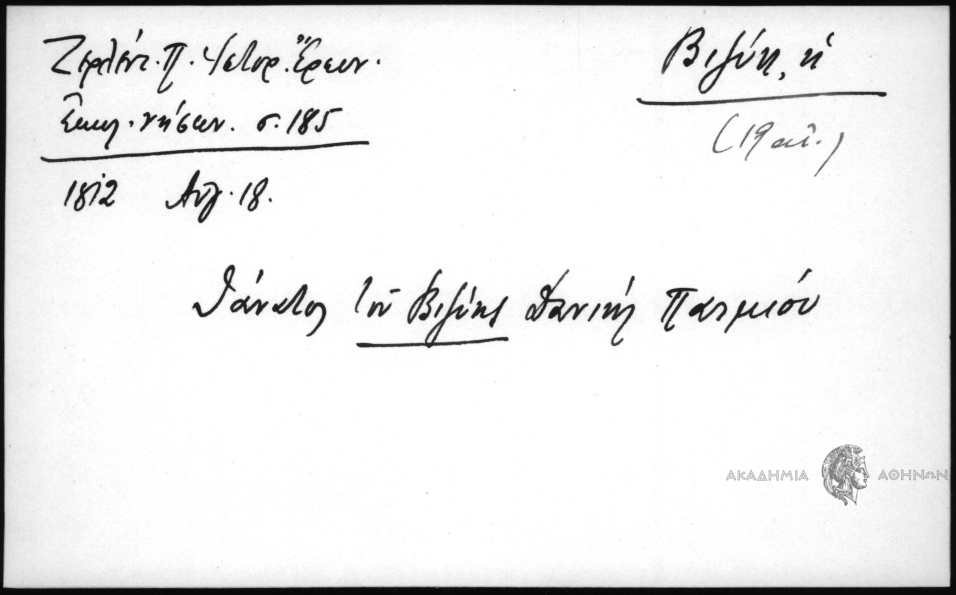 Ζερλέντ. Π. Ἱστορ. Ἔρευν.
Ἐκκλ. νήσων. σ. 185
Βιζύη, ἡ
(19 αἰ.)
1812 Αὐγ. 18.
Θάνατος τοῦ Βιζύης Δανιήλ Πατμίου
ΑΚΑΔΗΜΙΑ ΑΘΗΝΩΝ